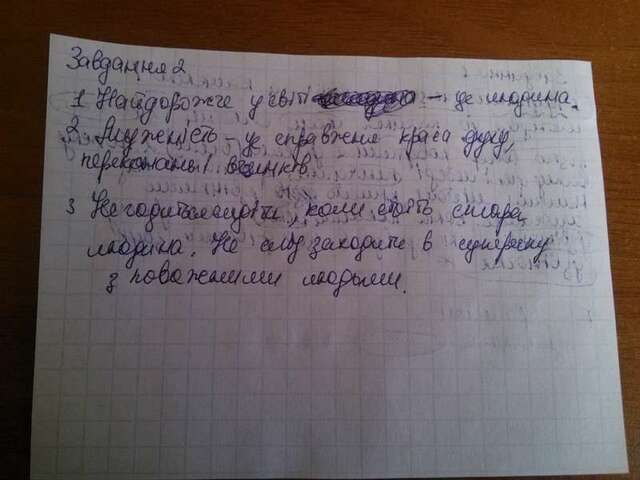 Завдання 2
1 Найдорожче у світі – це людина.
2 Мужність – це справжня краса духу,
переконань і вчинків.
3 Не годиться сидіти, коли стоїть стара
людина. Не слід заходити в суперечку
з поважними людьми.